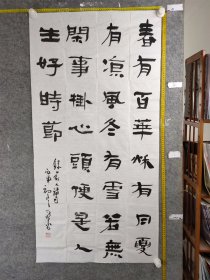 春有百華秋有月夏
有涼風冬有雪若無
閑事掛心頭便是人
生好時節